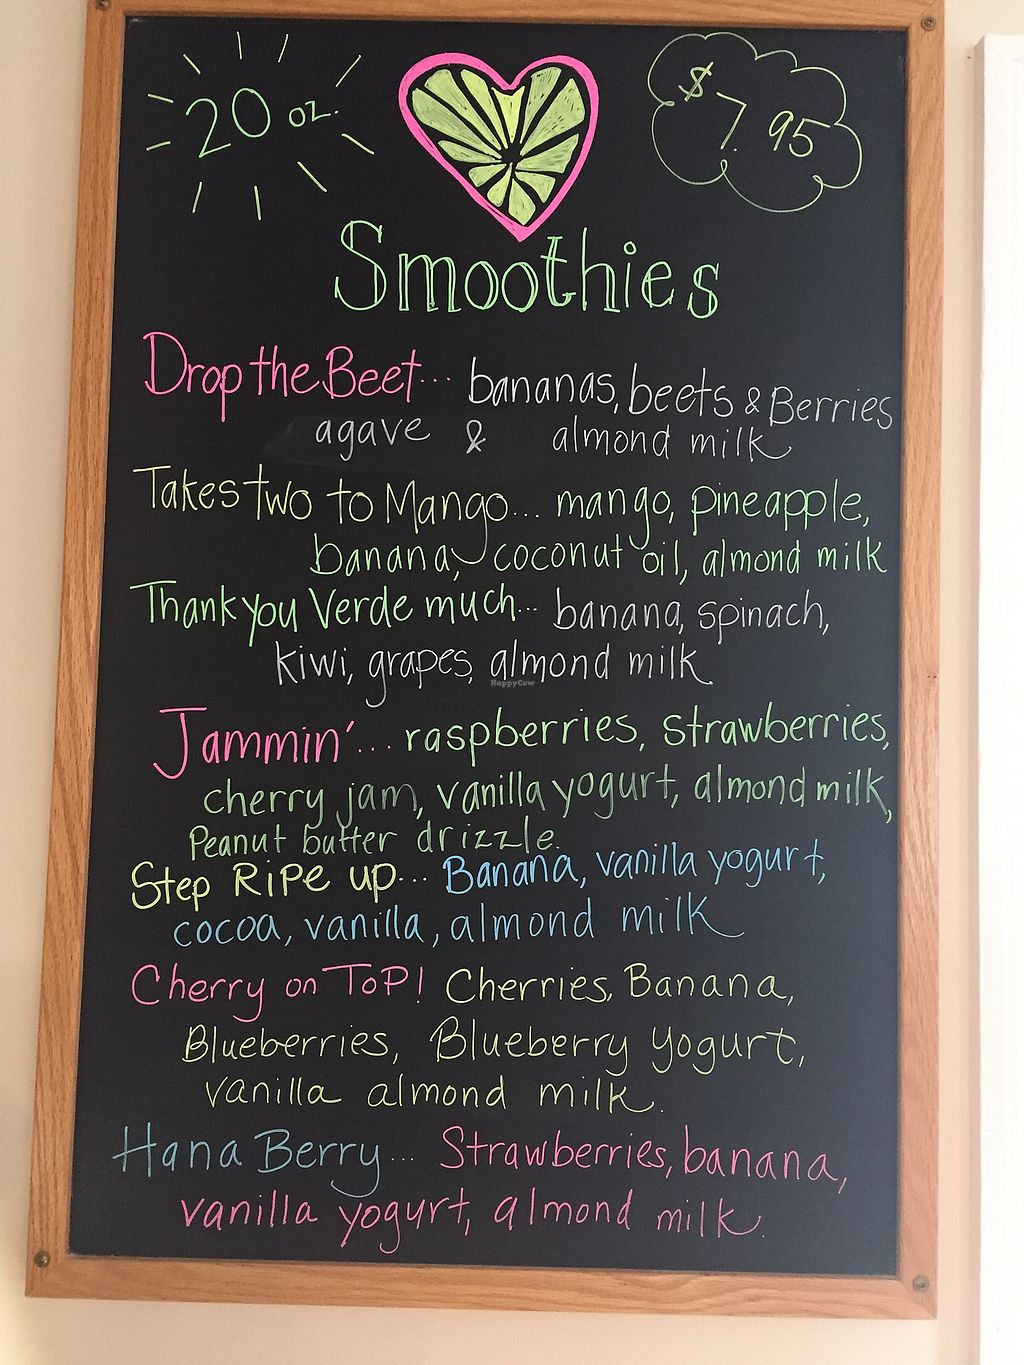 20 oz.
$7.95
Smoothies
Drop the Beet... bananas, beets & Berries
agave & almond milk
Takes two to Mango... mango, pineapple,
banana, coconut oil, almond milk
Thank you Verde much... banana, spinach,
kiwi, grapes, almond milk
HappyCow
Jammin'... raspberries, strawberries,
cherry jam, vanilla yogurt, almond milk,
Peanut butter drizzle.
Step RiPe up... Banana, vanilla yogurt,
cocoa, vanilla, almond milk
Cherry on ToP! Cherries, Banana,
Blueberries, Blueberry Yogurt,
vanilla almond milk.
Hana Berry... Strawberries, banana,
vanilla yogurt, almond milk.